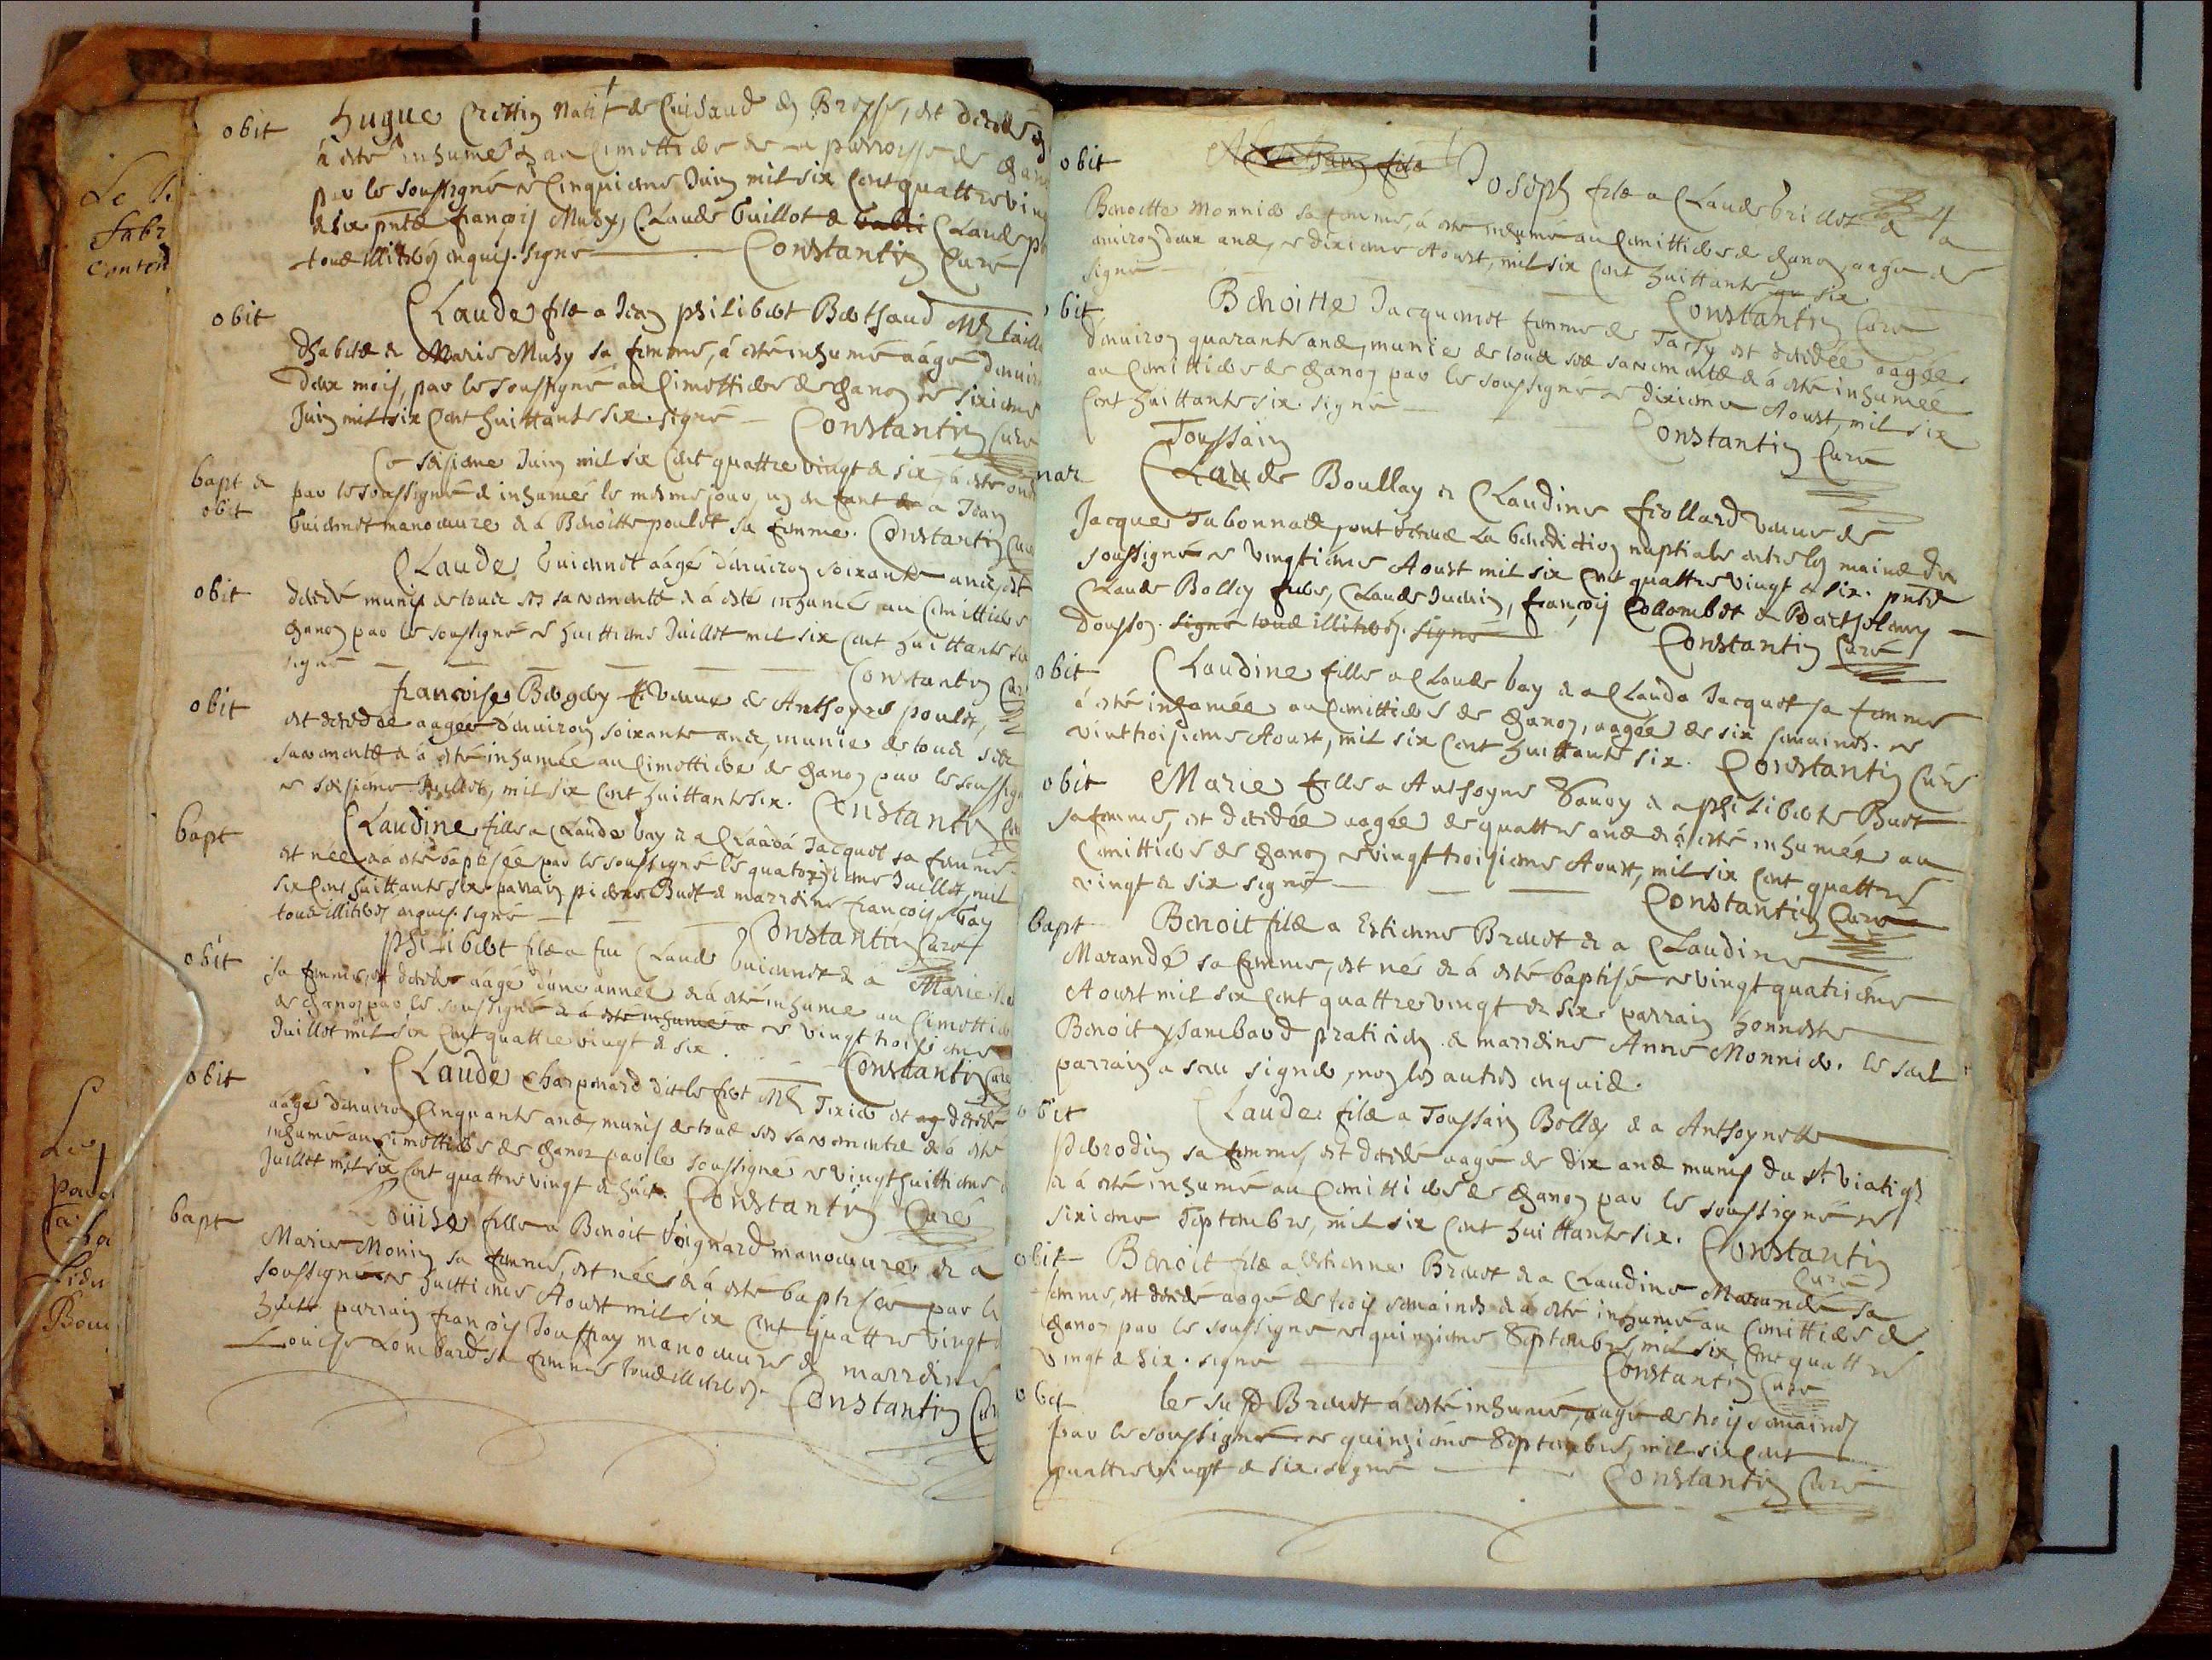 obit
hugue Crettin natif de Cuisaud en Bresse, est decedé et
a esté inhumé au Cimettiere de la parroisse de
par le soussigné ce Cinquieme Juin mil six Cent quattrevingt
& six pntz françois Musy, Claude Guillot & Claude
tous illiterés enquis. signé Constantin Curé
obit
Claude filz a Jean philibert Berthaud Mre
d'habitz & Marie Musy sa femme, á esté inhumé aagé denuiron
deux mois, par le soussigné au Cimettiere de chanoz ce sixieme
Juin mil six Cent huittante six. signé Constantin Curé
bapt &
obit
Ce seisieme Juin mil six Cent quattre vingt & six, á esté
par le soussigné & inhumé le mesme jour, un enfant a Jean
Guiennot manoeuure & á Benoitte poulet sa femme. Constantin Curé
obit
Claude Guiennot aagé d'enuiron soixante ans, est
decedé munis de tous ses sacrementz & á esté inhumé au Cimittiere
chanoz par le soussigné ce huittieme Juillet mil six Cent huittante six
signé Constantin Curé
obit
francoise vueue de Anthoyne poulet,
est decedée aagee d'enuiron soixante ans, munie de tous ses
sacrementz & á esté inhumée au Cimettiere de chanoz par le soussigné
ce seisieme Juillet, mil six Cent huittante six. Constantin Curé
bapt
Claudine fille a Claude bay & a Clauda Jacquet sa femme
est née & á esté baptisée par le soussigné le quatorzieme Juillet, mil
six Cent huittante six. parrain pierre Buet & marreine francoise bay
tous illiterés enquis. signé Constantin Curé
obit
philibert filz a feu Claude Guiennot & á Marie
sa femme, est decedé aagé d'une année & á esté inhumé au Cimettiere
de chanoz par le soussigné & á esté inhumé a ce vingt troisieme
Juillet mil six Cent quattre vingt & six. Constantin Curé
obit
Claude Charpenard dit le fiot Mre Texier est ag decedé
aagé denuiron Cinquante ans, munis de tous ses sacrementz & á esté
inhumé au Cimettiere de chanoz par le soussigné ce vingthuittieme
Juillet mil six Cent quattre vingt & huit. Constantin Curé
bapt
Loüise fille a Benoit Poignard manoeuure & a
Marie Monin sa femme, est née & á esté baptisée par le
soussigné ce huittieme Aoust mil six Cent quattre vingt
huit. parrain françois Jouffray manoeuure & marreine
Louise Lombard sa femme tous illiterés. Constantin Curé
obit
Joseph filz a Claude brillat & a
Benoitte Monnier sa femme, á esté inhumé au Cimittiere de chanoz, aagé de
enuiron deux ans, ce dixieme Aoust, mil six Cent huittante six
signé Constantin Curé
obit
Benoitte Jacquemet femme de Tassy est decedée aagée
d'enuiron quarante ans, munie de tous ses sacrementz & á esté inhumée
au Cimittiere de chanoz par le soussigné ce dixieme Aoust, mil six
Cent huittante six. signé Constantin Curé
mar
Toussain
Claude Boullay & Claudine frollard vueue de
Jacque Tabonnard, ont receue la benediction nuptiale entre les mains du
soussigné ce vingtieme Aoust mil six Cent quattre vingt & six. pntz
Claude Bolley, Claude Juenin, françois Collombet & Barthelemy
Dousson. signé tous illiterés. signé Constantin Curé
obit
Claudine fille a Claude bay & a Clauda Jacquet sa femme
á esté inhumée au Cimittiere de chanoz, aagée de six semaines. ce
vint troisieme Aoust, mil six Cent huittante six. Constantin Curé
obit
Marie fille a Anthoyne Sauoy & a philiberte Buet
sa femme, est decedée aagée de quattre ans & á esté inhumée au
Cimittiere de chanoz ce vingt troisieme Aoust, mil six Cent quattre
vingt & six signé Constantin Curé
bapt
Benoit filz a Estienne Breuet & a Claudine
Marandé sa femme, est né & á esté baptisé ce vingt quatrieme
Aoust mil six Cent quattre vingt & six. parrain honneste
Benoit ysambard praticien & marreine Anne Monnier. le seul
parrain a sceu signer, non les autres enquis.
obit
Claude filz a Toussain Bolley & a Anthoynette
sa femme, est decedé aagé de dix ans munis du st. viatiq
& á esté inhumé au Cimittiere de chanoz par le soussigné ce
sixieme Septembre, mil six Cent huittante six. Constantin
Curé
obit
Benoit filz a Estienne Breuet & a Claudine Marandé sa
femme, est decedé aagé de trois semaines & á esté inhumé au Cimittiere de
chanoz par le soussigné ce quinzieme Septembre, mil six Cent quattre
vingt & six. signé Constantin Curé
obit
le sud Breuet á esté inhumé, aagé de trois semaines
par le soussigné ce quinzieme Septembre, mil six Cent
quattre vingt & six. signé Constantin Curé